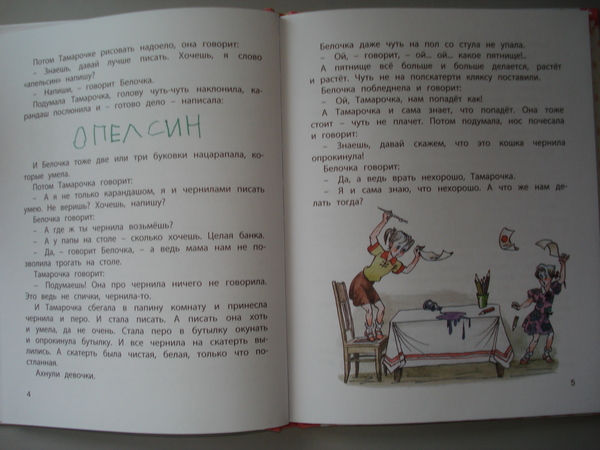 Потом Тамарочке рисовать надоело, она говорит:
– Знаешь, давай лучше писать. Хочешь, я слово
«апельсин» напишу?
– Напиши, – говорит Белочка.
Подумала Тамарочка, голову чуть-чуть наклонила, ка-
рандаш послюнила и – готово дело – написала:
ОПЕЛСИН
И Белочка тоже две или три буковки нацарапала, ко-
торые умела.
Потом Тамарочка говорит:
– А я не только карандашом, я и чернилами писать
умею. Не веришь? Хочешь, напишу?
Белочка говорит:
– А где ж ты чернила возьмёшь?
– А у папы на столе – сколько хочешь. Целая банка.
– Да, – говорит Белочка, – а ведь мама нам не по-
зволила трогать на столе.
Тамарочка говорит:
– Подумаешь! Она про чернила ничего не говорила.
Это ведь не спички, чернила-то.
И Тамарочка сбегала в папину комнату и принесла
чернила и перо. И стала писать. А писать она хоть
и умела, да не очень. Стала перо в бутылку окунать
и опрокинула бутылку. И все чернила на скатерть вы-
лились. А скатерть была чистая, белая, только что по-
стланная.
Ахнули девочки.
4
Белочка даже чуть на пол со стула не упала.
– Ой, – говорит, – ой... ой... какое пятнище!..
А пятнище всё больше и больше делается, растёт
и растёт. Чуть не на полскатерти кляксу поставили.
Белочка побледнела и говорит:
– Ой, Тамарочка, нам попадёт как!
А Тамарочка и сама знает, что попадёт. Она тоже
стоит – чуть не плачет. Потом подумала, нос почесала
и говорит:
– Знаешь, давай скажем, что это кошка чернила
опрокинула!
Белочка говорит:
– Да, а ведь врать нехорошо, Тамарочка.
– Я и сама знаю, что нехорошо. А что же нам де-
лать тогда?
5